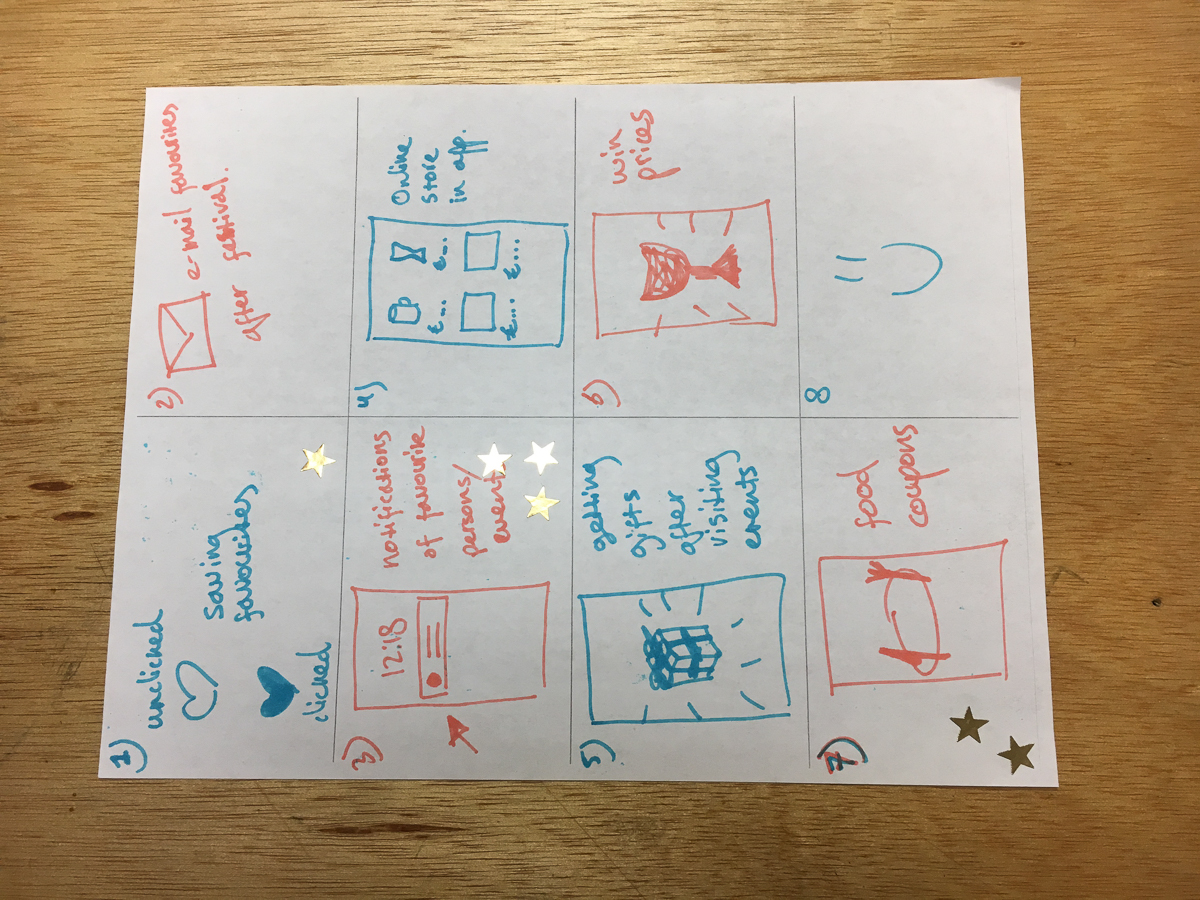 1)
unclicked
saving
favourites
clicked
2)
e-mail favourites
after festival.
3)
12:18
notifications
of favourite
persons/
event
4)
Online
store
in app.
£... £...
£... £...
5)
getting
gifts
after
visiting
events
6)
win
prices
7)
food
coupons
8